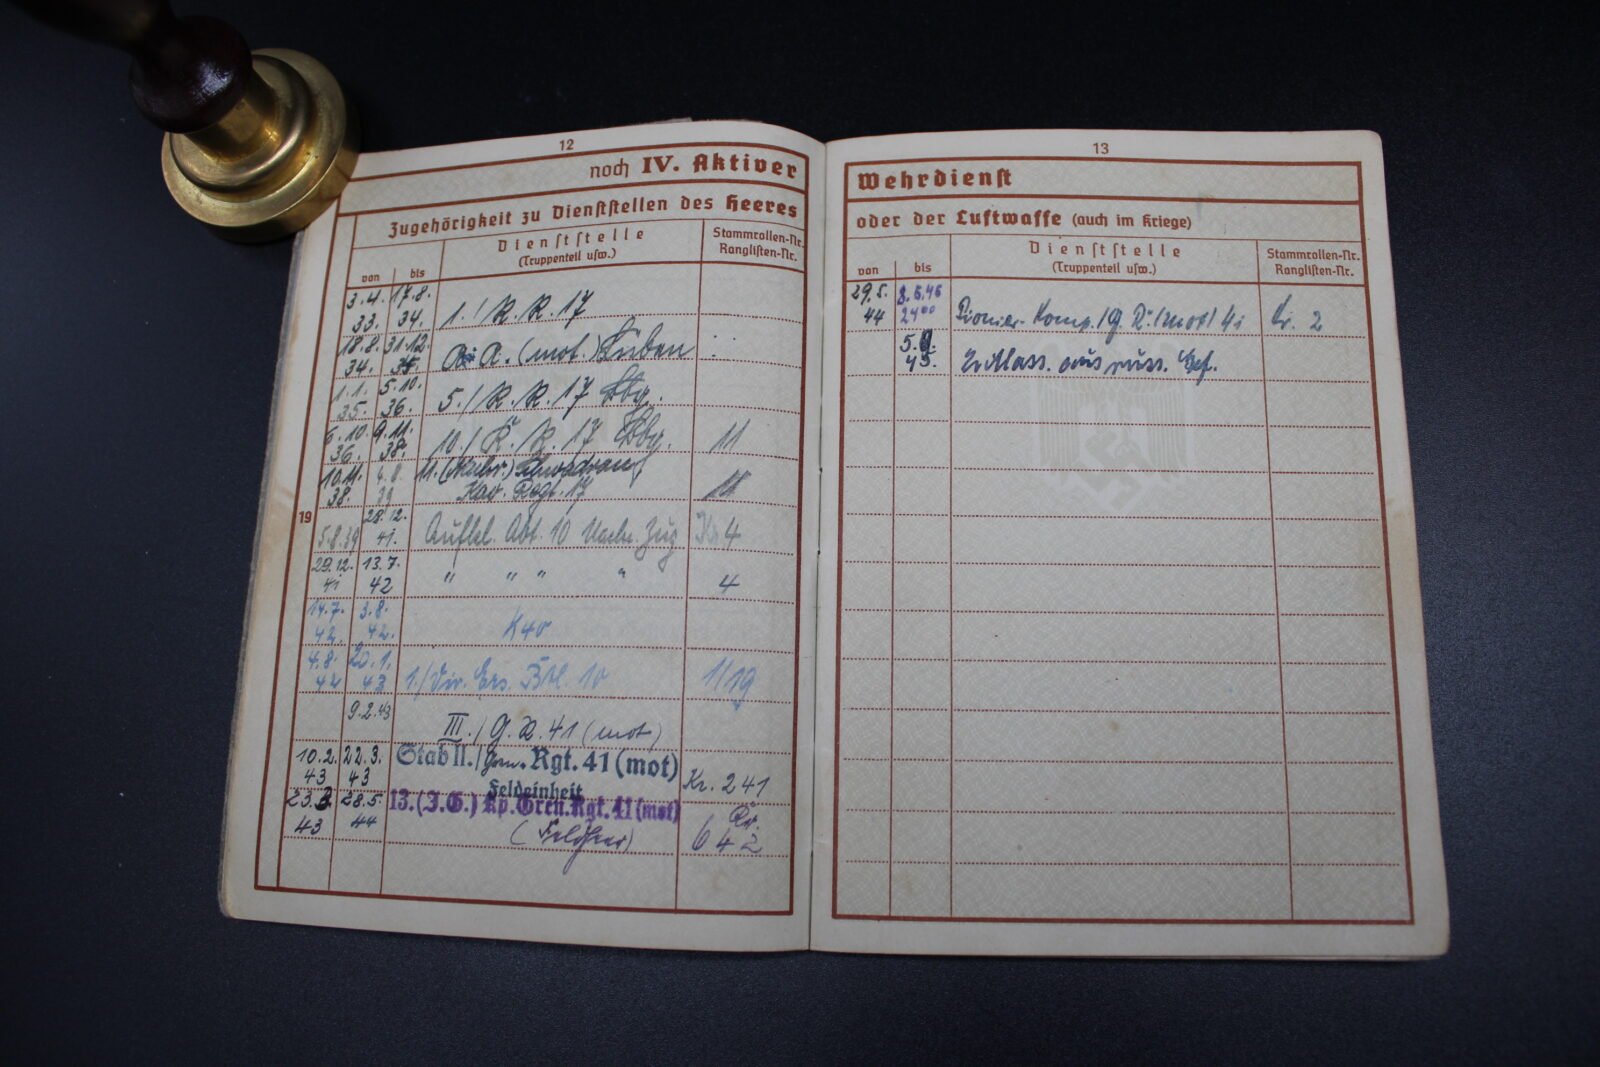 12
noch IV. Aktiver
Zugehörigkeit zu Dienststellen des Heeres
von
bis
Dienststelle
(Truppenteil usw.)
Stammrollen-Nr.
Ranglisten-Nr.
19
3.4. 17.8.
33. 34. 1./R.R.17
18.8. 31.12.
34. A.A. (mot.) Lüben
1.1. 5.10.
35. 36. 5./R.R.17 Bbg.
6.10. 9.11.
36. 38. 10./K.R.17 Bbg. 11
10.11. 4.8. 11. (Nachr.) Schwadron
38. 39 Kav. Regt. 17 11
28.12.
5.8.39 41. Aufkl. Abt. 10 Nachr. Zug Kr 4
29.12. 13.7.
41 42 " " " " 4
14.7. 3.8.
42. 42. K40
4.8. 20.1.
42 43 1./Div. Ers. Btl. 10 1/19
9.2.43
III./G.R.41 (mot)
10.2. 22.3. Stab II./Gren. Rgt. 41 (mot)
43 43 Kr. 241
Feldeinheit
23.3. 28.5. 13.(I.G.) Kp. Gren. Rgt. 41 (mot)
43 44 (Feldheer) 642
13
Wehrdienst
oder der Luftwaffe (auch im Kriege)
von
bis
Dienststelle
(Truppenteil usw.)
Stammrollen-Nr.
Ranglisten-Nr.
29.5. 8.5.45
44 24⁰⁰ Pionier-Komp./G.R. (mot) 41 Kr. 2
5.9.
45. Entlass. aus russ. Gef.